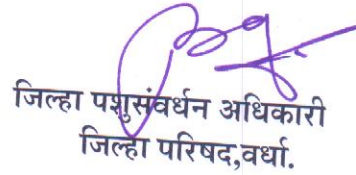 जिल्हा पशुसंवर्धन अधिकारी
जिल्हा परिषद,वर्धा.